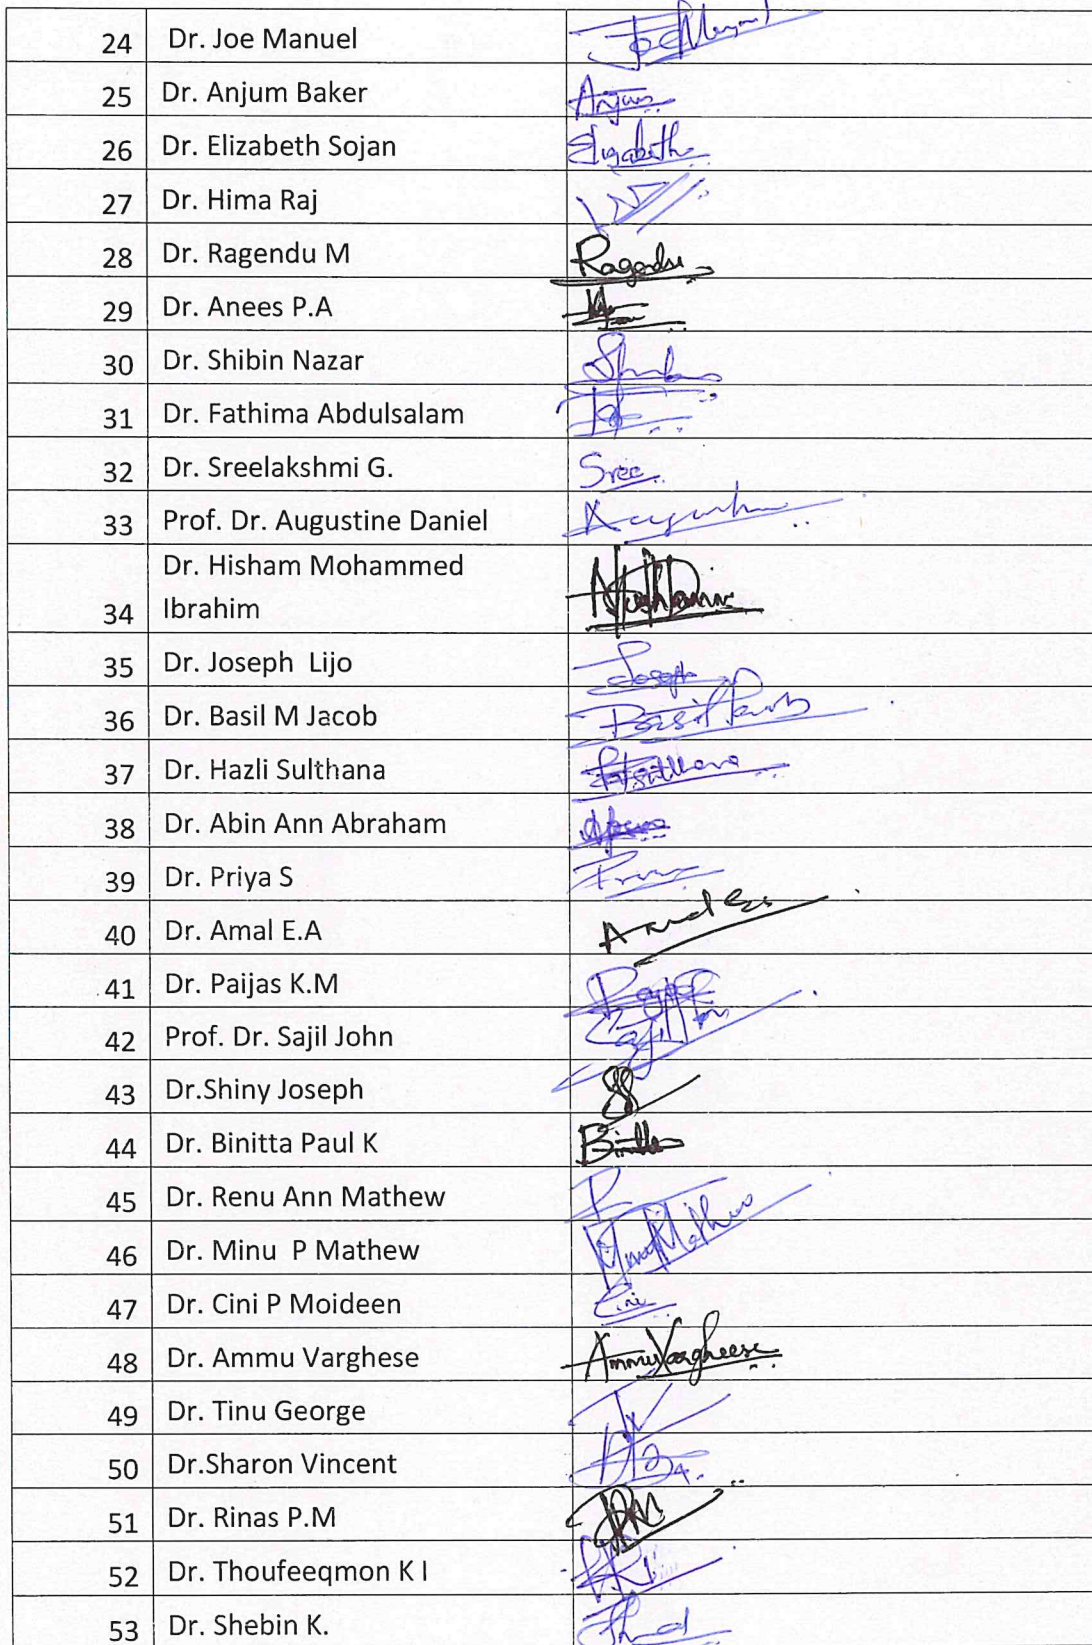 24 Dr. Joe Manuel Joe Manuel
25 Dr. Anjum Baker Anjum
26 Dr. Elizabeth Sojan Elizabeth
27 Dr. Hima Raj
28 Dr. Ragendu M Ragendu
29 Dr. Anees P.A
30 Dr. Shibin Nazar
31 Dr. Fathima Abdulsalam
32 Dr. Sreelakshmi G. Sree
33 Prof. Dr. Augustine Daniel
Dr. Hisham Mohammed
34 Ibrahim
35 Dr. Joseph Lijo Joseph
36 Dr. Basil M Jacob Basil
37 Dr. Hazli Sulthana
38 Dr. Abin Ann Abraham
39 Dr. Priya S
40 Dr. Amal E.A Amal
41 Dr. Paijas K.M
42 Prof. Dr. Sajil John
43 Dr.Shiny Joseph
44 Dr. Binitta Paul K
45 Dr. Renu Ann Mathew
46 Dr. Minu P Mathew Minu Mathew
47 Dr. Cini P Moideen Cini
48 Dr. Ammu Varghese Ammu Varghese
49 Dr. Tinu George
50 Dr.Sharon Vincent
51 Dr. Rinas P.M
52 Dr. Thoufeeqmon K I
53 Dr. Shebin K.